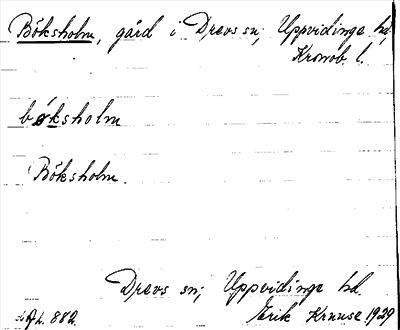 Böksholm, gård i Drevs sn; Uppvidinge hd,
Kronob. l.
bøksholm
Böksholm.
Drevs sn; Uppvidinge hd.
Ah. 882.
Erik Krause 1929